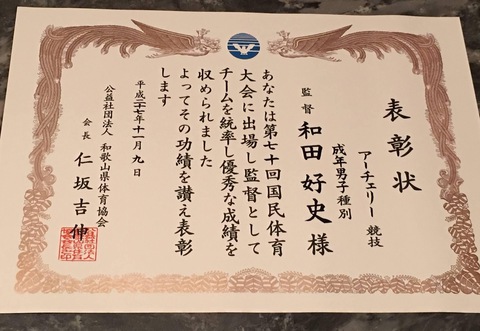 表彰状
アーチェリー 競技
成年男子種別
監督 和田好史様
あなたは第七十回国民体育
大会に出場し監督として
チームを統率し優秀な成績を
収められました
よってその功績を讃え表彰
します
平成二十七年十一月九日
公益社団法人 和歌山県体育協会
会長 仁坂吉伸